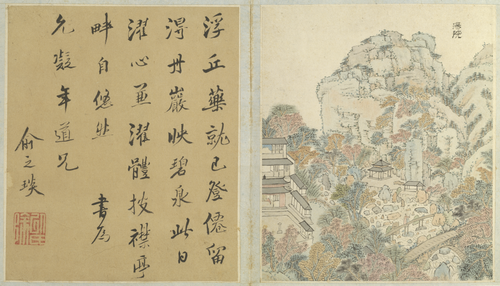 浮丘藥就已登僊留
得丹巖映碧泉此日
濯心兼濯體披襟亭
畔自悠然
書為
允凝年道兄
俞之琰
湯院